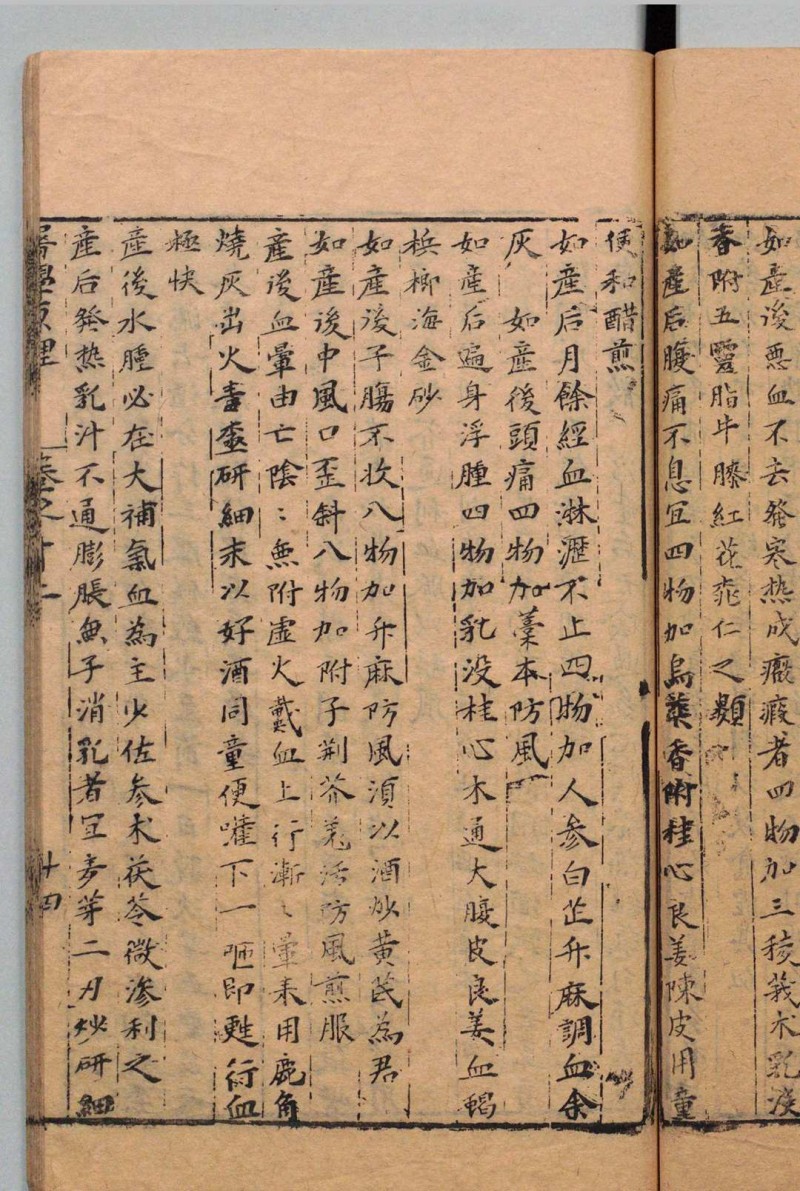 如產後悪血不去發寒热成癥瘕者四物加三稜莪术乳没
香附五靈脂牛膝紅花桃仁之類
如產后腹痛不息宜四物加烏藥香附桂心良姜陳皮用童
便和醋煎
如產后月餘經血淋瀝不止四物加人参白芷升麻調血余
灰　如產後頭痛四物加藁本防風
如產后遍身浮腫四物加乳没桂心木通大腹皮良姜血蝎
梹榔海金砂
如產後子腸不收八物加升麻防風湏以酒炒黄芪為君
如產後中風口歪斜八物加附子荆芥羌活防風煎服
產後血暈由亡陰〻無附虛火載血上行漸〻暈来用鹿角
燒灰出火毒研細末以好酒同童便嚾下一呃即甦行血
極快
產後水腫必在大補氣血為主少佐参术茯苓微滲利之
產后發热乳汁不通膨脹無子消乳者宜麥芽二刄炒研細
醫學原理　卷之十二　十四